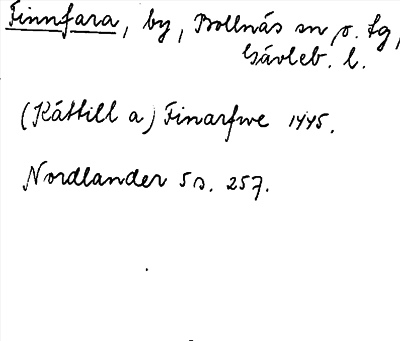 Finnfara, by, Bollnäs sn o. tg,
Gävleb. l.
(Kättill a) Finarfwe 1445.
Nordlander 5 s. 257.